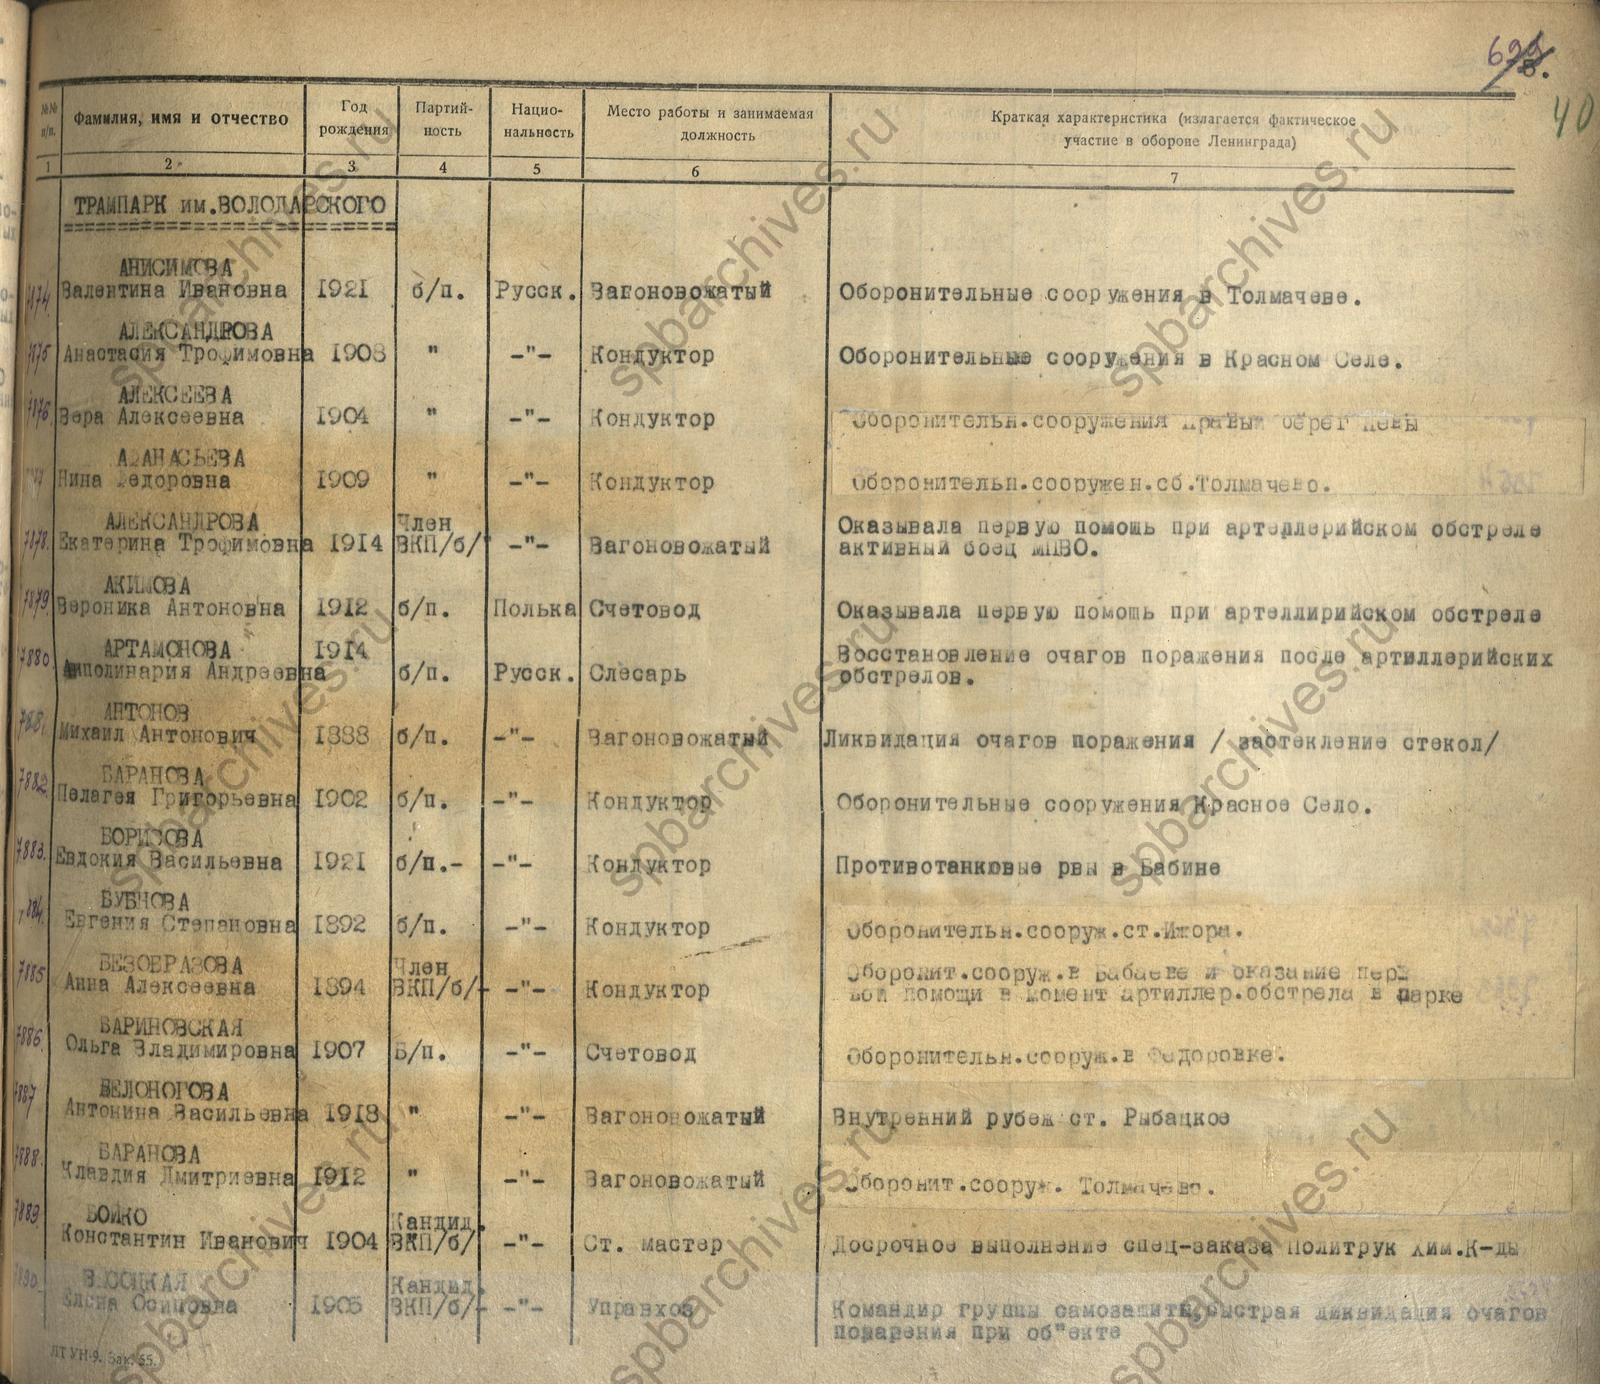 699/8.
40
№№ п/п.
Фамилия, имя и отчество
Год рождения
Партий-ность
Нацио-нальность
Место работы и занимаемая должность
Краткая характеристика (излагается фактическое участие в обороне Ленинграда)
1 2 3 4 5 6 7
ТРАМПАРК им.ВОЛОДАРСКОГО
АНИСИМОВА
7874. Валентина Ивановна 1921 б/п. Русск. Вагоновожатый Оборонительные сооружения в Толмачеве.
АЛЕКСАНДРОВА
7875 Анастасия Трофимовна 1908 " -"- Кондуктор Оборонительные сооружения в Красном Селе.
АЛЕКСЕЕВА
7876. Вера Алексеевна 1904 " -"- Кондуктор Оборонительн.сооружения правый берег Невы
АФАНАСЬЕВА
Нина Федоровна 1909 " -"- Кондуктор Оборонительн.сооружен.сб.Толмачево.
АЛЕКСАНДРОВА Член Оказывала первую помощь при артеллерийском обстреле
7878. Екатерина Трофимовна 1914 ВКП/б/ -"- Вагоновожатый активный боец МПВО.
АКИМОВА
7879. Вероника Антоновна 1912 б/п. Полька Счетовод Оказывала первую помощь при артеллирийском обстреле
АРТАМОНОВА 1914 Восстановление очагов поражения после артиллерийских
7880. Апполинария Андреевна б/п. Русск. Слесарь обстрелов.
АНТОНОВ
7881. Михаил Антонович 1888 б/п. -"- Вагоновожатый Ликвидация очагов поражения / застекление стекол/
БАРАНОВА
7882 Пелагея Григорьевна 1902 б/п. -"- Кондуктор Оборонительные сооружения Красное Село.
БОРИСОВА
7883. Евдокия Васильевна 1921 б/п.- -"- Кондуктор Противотанковые рвы в Бабине
БУБНОВА
7884. Евгения Степановна 1892 б/п. -"- Кондуктор Оборонительн.сооруж.ст.Ижора.
БЕЗОБРАЗОВА Член Оборонит.сооруж.в Бабаеве и оказание перв
7885 Анна Алексеевна 1894 ВКП/б/- -"- Кондуктор вой помощи в момент артиллер.обстрела в парке
БАРИНОВСКАЯ
7886. Ольга Владимировна 1907 Б/п. -"- Счетовод Оборонительн.сооруж.в Федоровке.
БЕЛОНОГОВА
7887 Антонина Васильевна 1918 " -"- Вагоновожатый Внутренний рубеж ст. Рыбацкое
БАРАНОВА
7888. Клавдия Дмитриевна 1912 " -"- Вагоновожатый Оборонит.сооруж. Толмачево.
БОЙКО Кандид.
7889. Константин Иванович 1904 ВКП/б/ -"- Ст. мастер Досрочное выполнение спец-заказа Политрук хим.К-ды
ВЫСОЦКАЯ Кандид.
7890. Елена Осиповна 1905 ВКП/б/- -"- Управхоз Командир группы самозащиты,быстрая ликвидация очагов
поражения при об"екте
ЛТ УН-9. Зак. 55.
spbarchives.ru
spbarchives.ru
spbarchives.ru
spbarchives.ru
spbarchives.ru
spbarchives.ru
spbarchives.ru
spbarchives.ru
spbarchives.ru